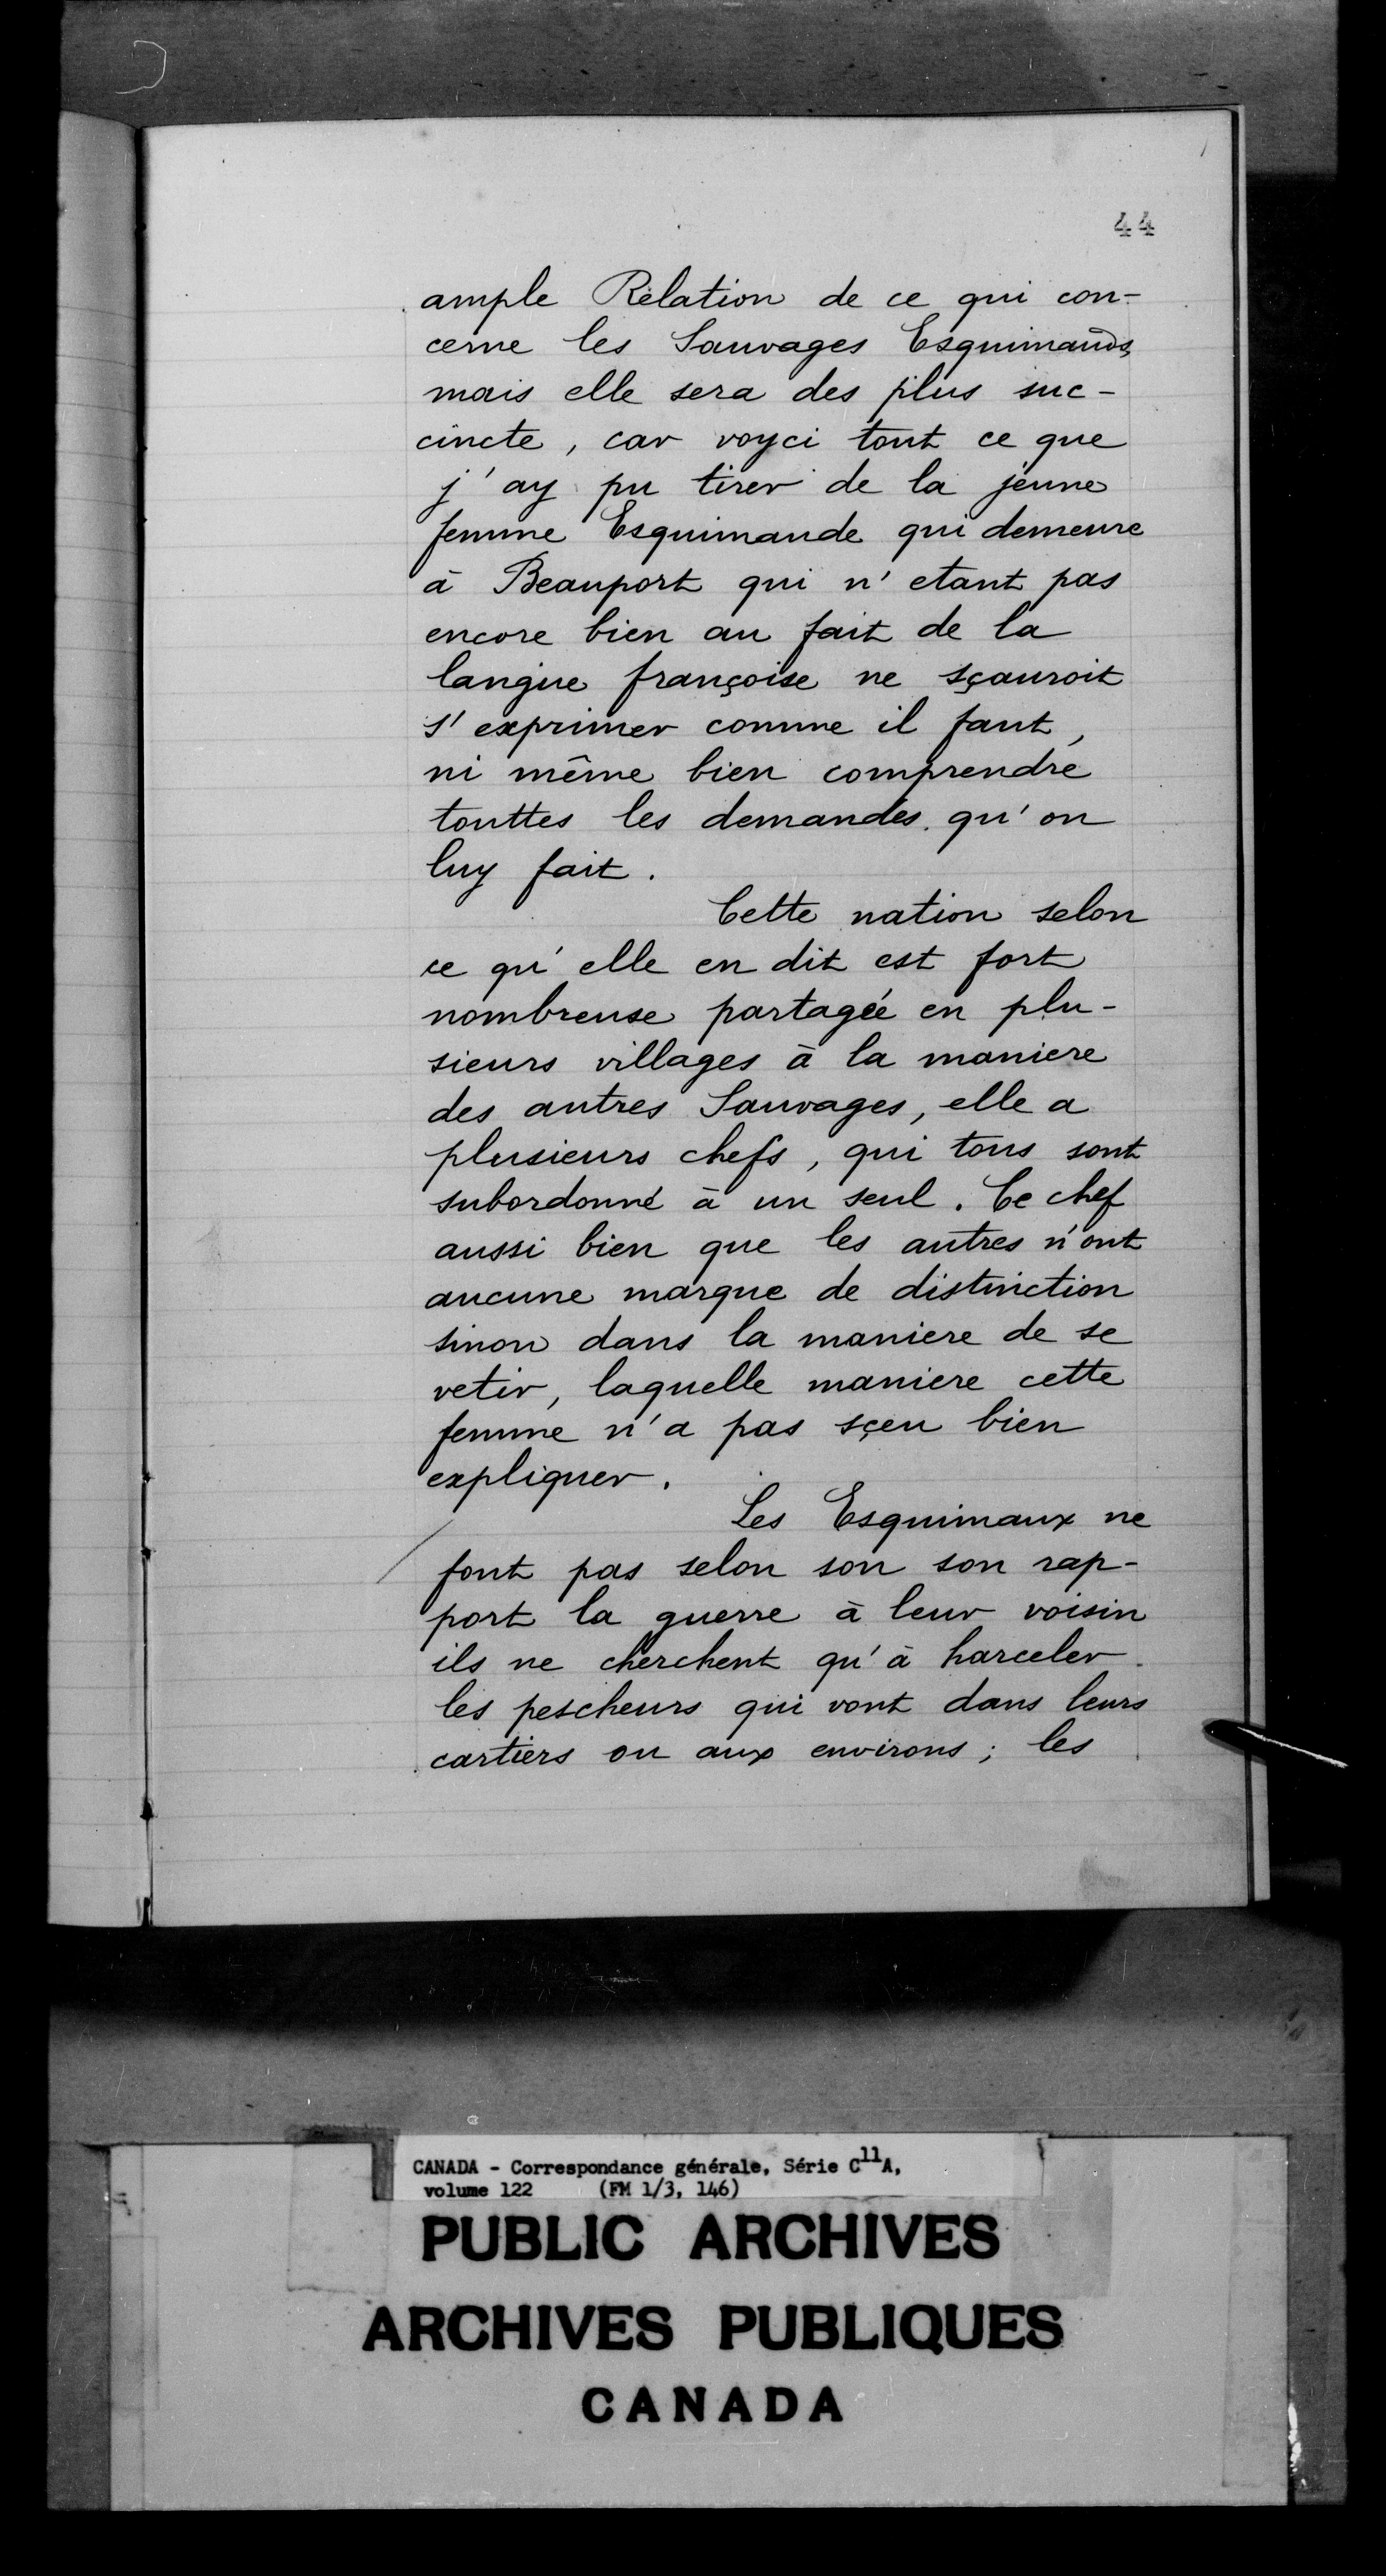 44
ample Rélation de ce qui con-
cerne les Sauvages Esquimauds,
mais elle sera des plus suc-
cincte, car voyci tout ce que
j'ay pu tirer de la jeune
femme Esquimaude qui demeure
à Beauport qui n'etant pas
encore bien au fait de la
langue françoise ne sçauroit
s'exprimer comme il faut,
ni même bien comprendre
touttes les demandes qu'on
luy fait.
Cette nation selon
ce qu'elle en dit est fort
nombreuse partagée en plu-
sieurs villages à la maniere
des autres Sauvages, elle a
plusieurs chefs, qui tous sont
subordonné à un seul. Ce chef
aussi bien que les autres n'ont
aucune marque de distinction
sinon dans la maniere de se
vetir, laquelle maniere cette
femme n'a pas sçeu bien
expliquer.
Les Esquimaux ne
font pas selon son son rap-
port la guerre à leur voisin
ils ne cherchent qu'à harceler
les pescheurs qui vont dans leurs
cartiers ou aux environs; les
CANADA - Correspondance générale, Série C11A,
volume 122 (FM 1/3, 146)
PUBLIC ARCHIVES
ARCHIVES PUBLIQUES
CANADA